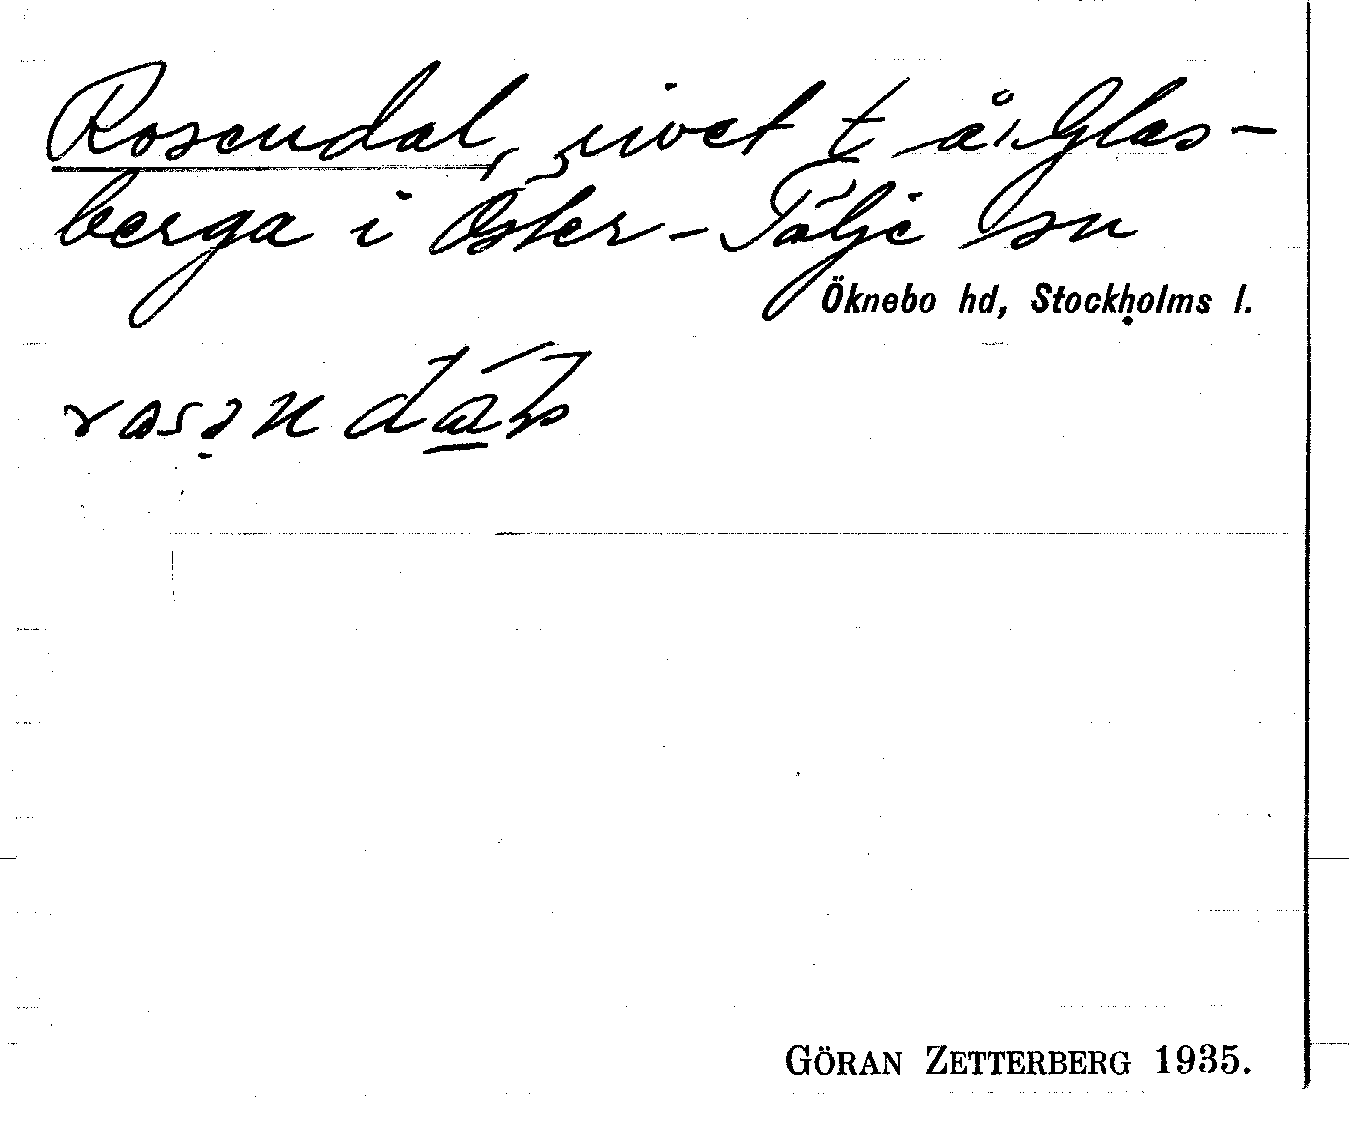 Rosendal, rivet t å Glas-
berga i Öster-Tälje sn
Öknebo hd, Stockholms l.
GÖRAN ZETTERBERG 1935.